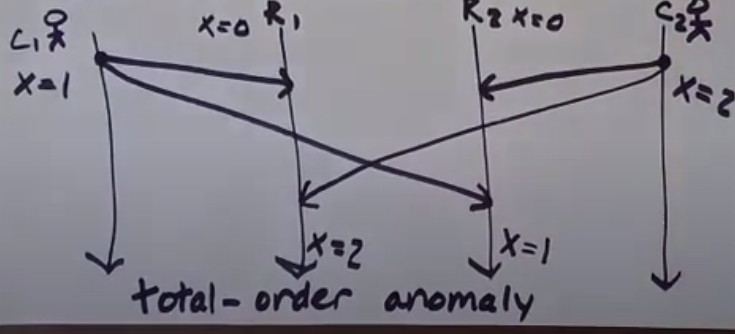 C₁ X=0 R₁ R₂ X=0 C₂
X=1 X=2
X=2 X=1
total-order anomaly